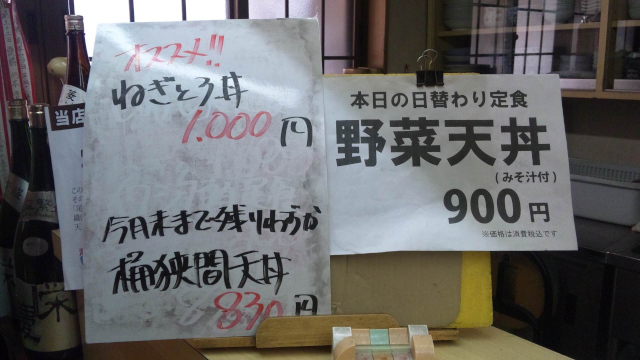 オススメ!!
ねぎとろ丼
1.000円
今月末まで残りわずか
桶狭間天丼
830円
本日の日替わり定食
野菜天丼
(みそ汁付)
900円
※価格は消費税込です
当店